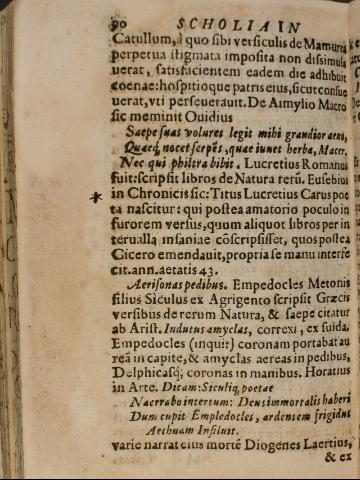 90 SCHOLIA IN
Catullum, à quo sibi versiculis de Mamurra
perpetua stigmata imposita non dissimula
uerat, satisfacientem eadem die adhibuit
coenae: hospitioque patris eius, sicut consue
uerat, vti perseuerauit. De Aimylio Macro
sic meminit Ouidius
Saepe suas volures legit mihi grandior aeuo,
Quaeq, nocet serpēs, quae iuuet herba, Macer.
Nec qui philtra bibit. Lucretius Romanus
fuit: scripsit libros de Natura rerū. Eusebius
* in Chronicis sic: Titus Lucretius Carus poe
ta nascitur: qui postea amatorio poculo in
furorem versus, quum aliquot libros per in
terualla insaniae cōscripsisset, quos postea
Cicero emendauit, propria se manu interfe
cit. ann. aetatis 43.
Aerisonas pedibus. Empedocles Metonis
filius Siculus ex Agrigento scripsit Graecis
versibus de rerum Natura, & saepe citatur
ab Arist. Indutus amyclas, correxi, ex suida.
Empedocles (inquit) coronam portabat au
reā in capite, & amyclas aereas in pedibus,
Delphicasq, coronas in manibus. Horatius
in Arte. Dicam: Siculiq, poetae
Naerrabo interitum: Deus immortalis haberi
Dum cupit Empledocles, ardentem frigidus
Aethnam Insiluit.
varie narrat eius mortē Diogenes Laertius,
& ex